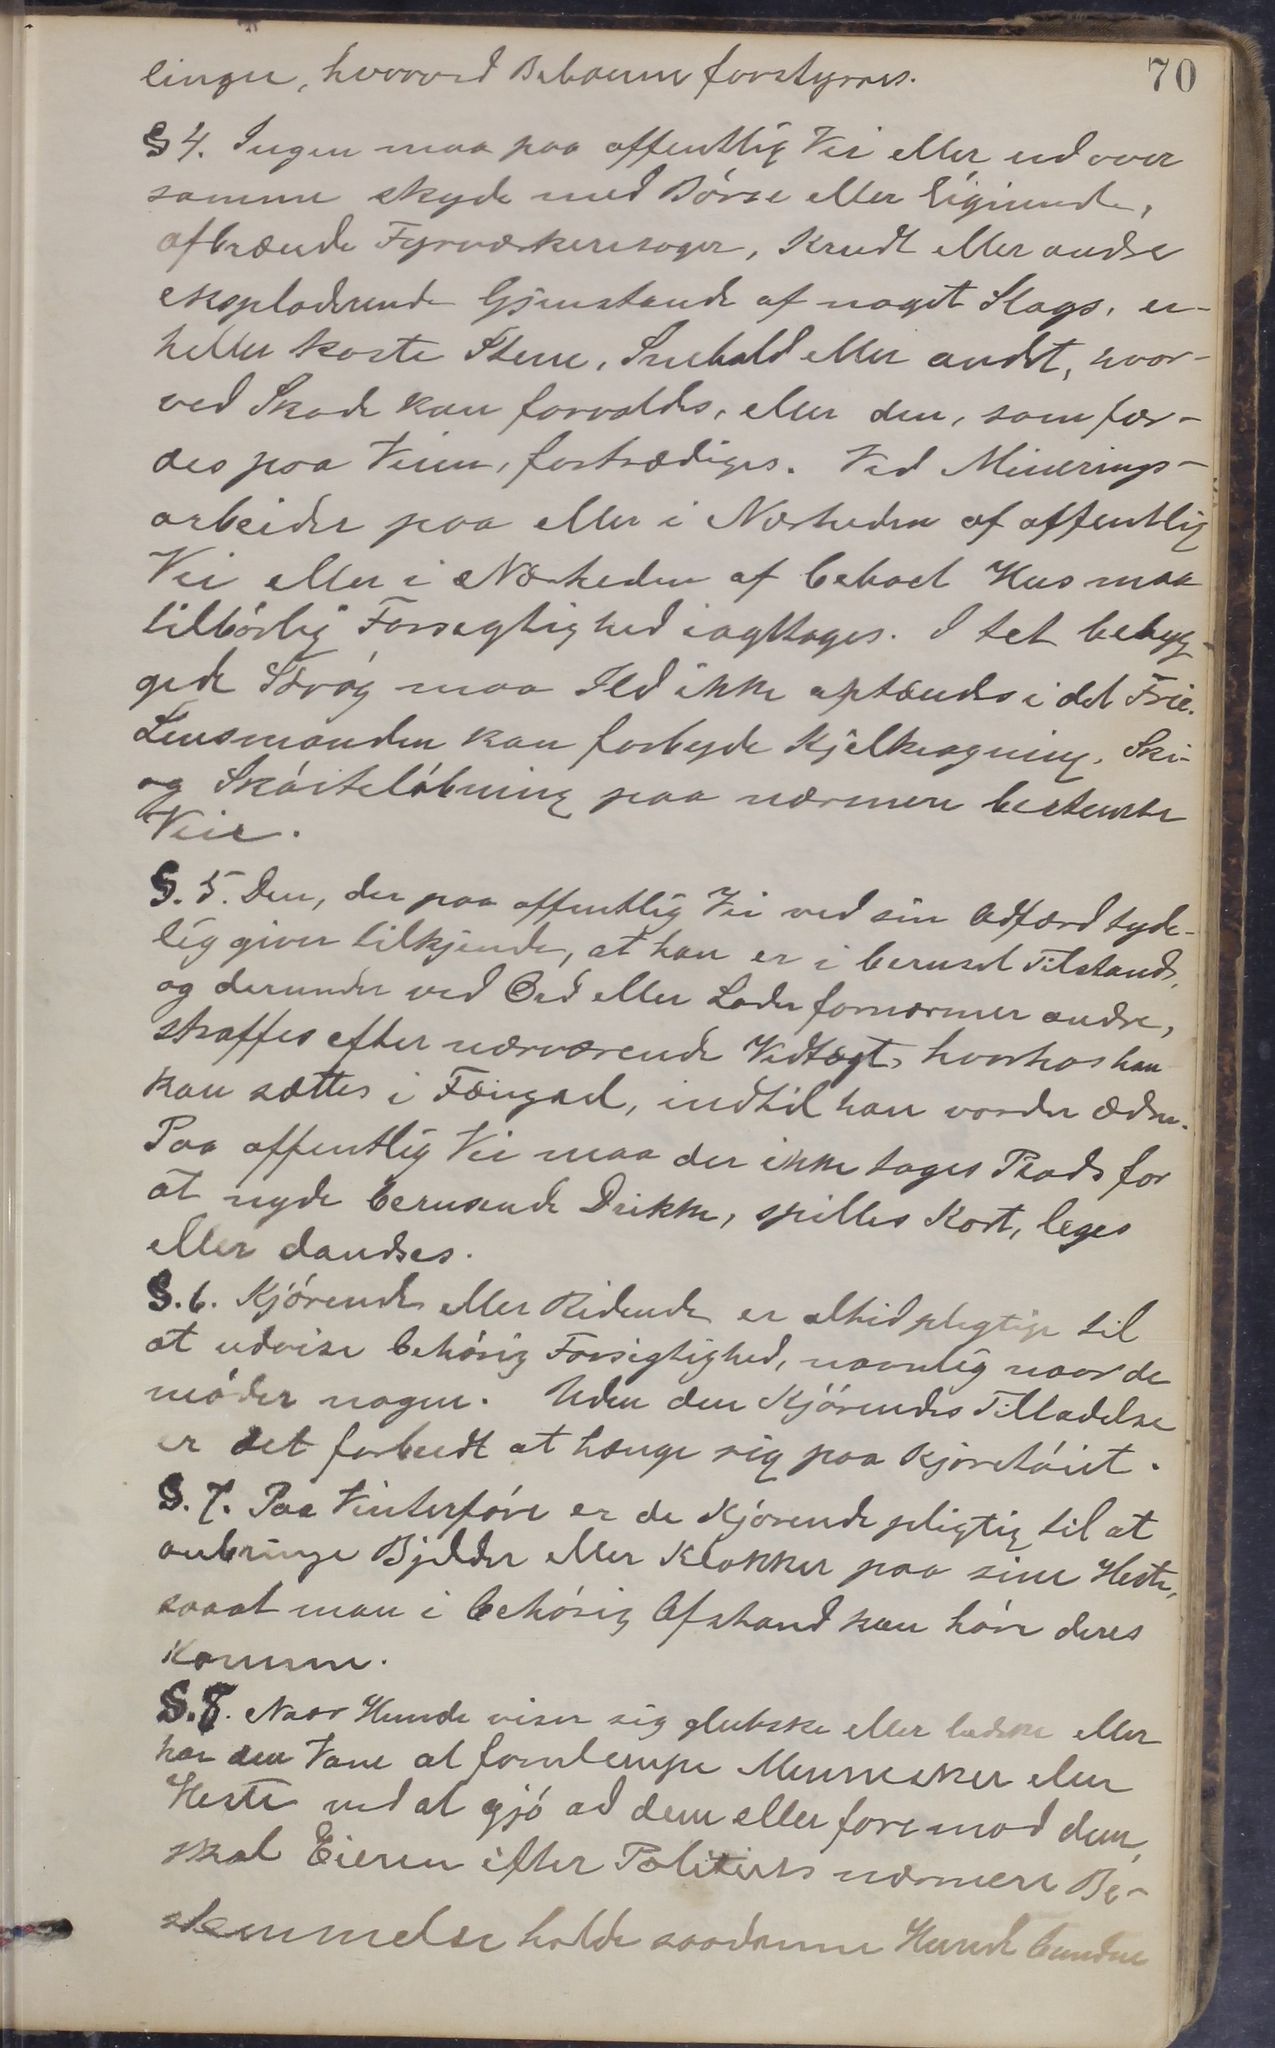 70
linger, hvorved Beboerne forstyrres.
§ 4. Ingen maa paa offentlig Vei eller ud over
samme skyde med Børse eller lignende,
afbrænde Fyrværkerisager, Krudt eller andre
eksploderende Gjenstande af noget Slags, ei-
heller kaste Stene, Snebold eller andet, hvor-
ved Skade kan forvoldes, eller den, som fær-
des paa Veien, fortrædiges. Ved Minerings-
arbeider paa eller i Nærheden af offentlig
Vei eller i Nærheden af beboet Hus maa
tilbørlig Forsigtighed iagttages. I tet bebyg-
gede Strøg maa Ild ikke optændes i det Frie.
Lensmanden kan forbyde Kjelkeagning, Ski-
og Skøiteløbning paa nærmere bestemte
Veie.
§. 5. Den, der paa offentlig Vei ved sin Adfærd tyde-
lig giver tilkjende, at han er i beruset Tilstand,
og derunder ved Ord eller Lader fornærmer andre,
straffes efter nærværende Vedtægt, hvorhos han
kan sættes i Fængsel, indtil han vorder ædru.
Paa offentlig Vei maa der ikke tages Plads for
at nyde berusende Drikke, spilles Kort, leges
eller dandses.
§. 6. Kjørende eller Ridende er altid pligtige til
at udvise behørig Forsigtighed, navnlig naar de
møder nogen. Uden den Kjørendes Tilladelse
er det forbudt at hænge sig paa Kjøretøiet.
§. 7. Paa Vinterføre er de Kjørende pligtig til at
anbringe Bjelder eller Klokker paa sine Heste,
saaat man i behørig Afstand kan høre deres
Komme.
§. 8. Naar Hunde viser sig glubske eller ledske eller
har den Vane at fornlempe Mennesker eller
Heste ved at gjø ad dem eller fare mod dem,
skal Eieren efter Politiets nærmere Be-
stemmelse holde saadanne Hunde bundne